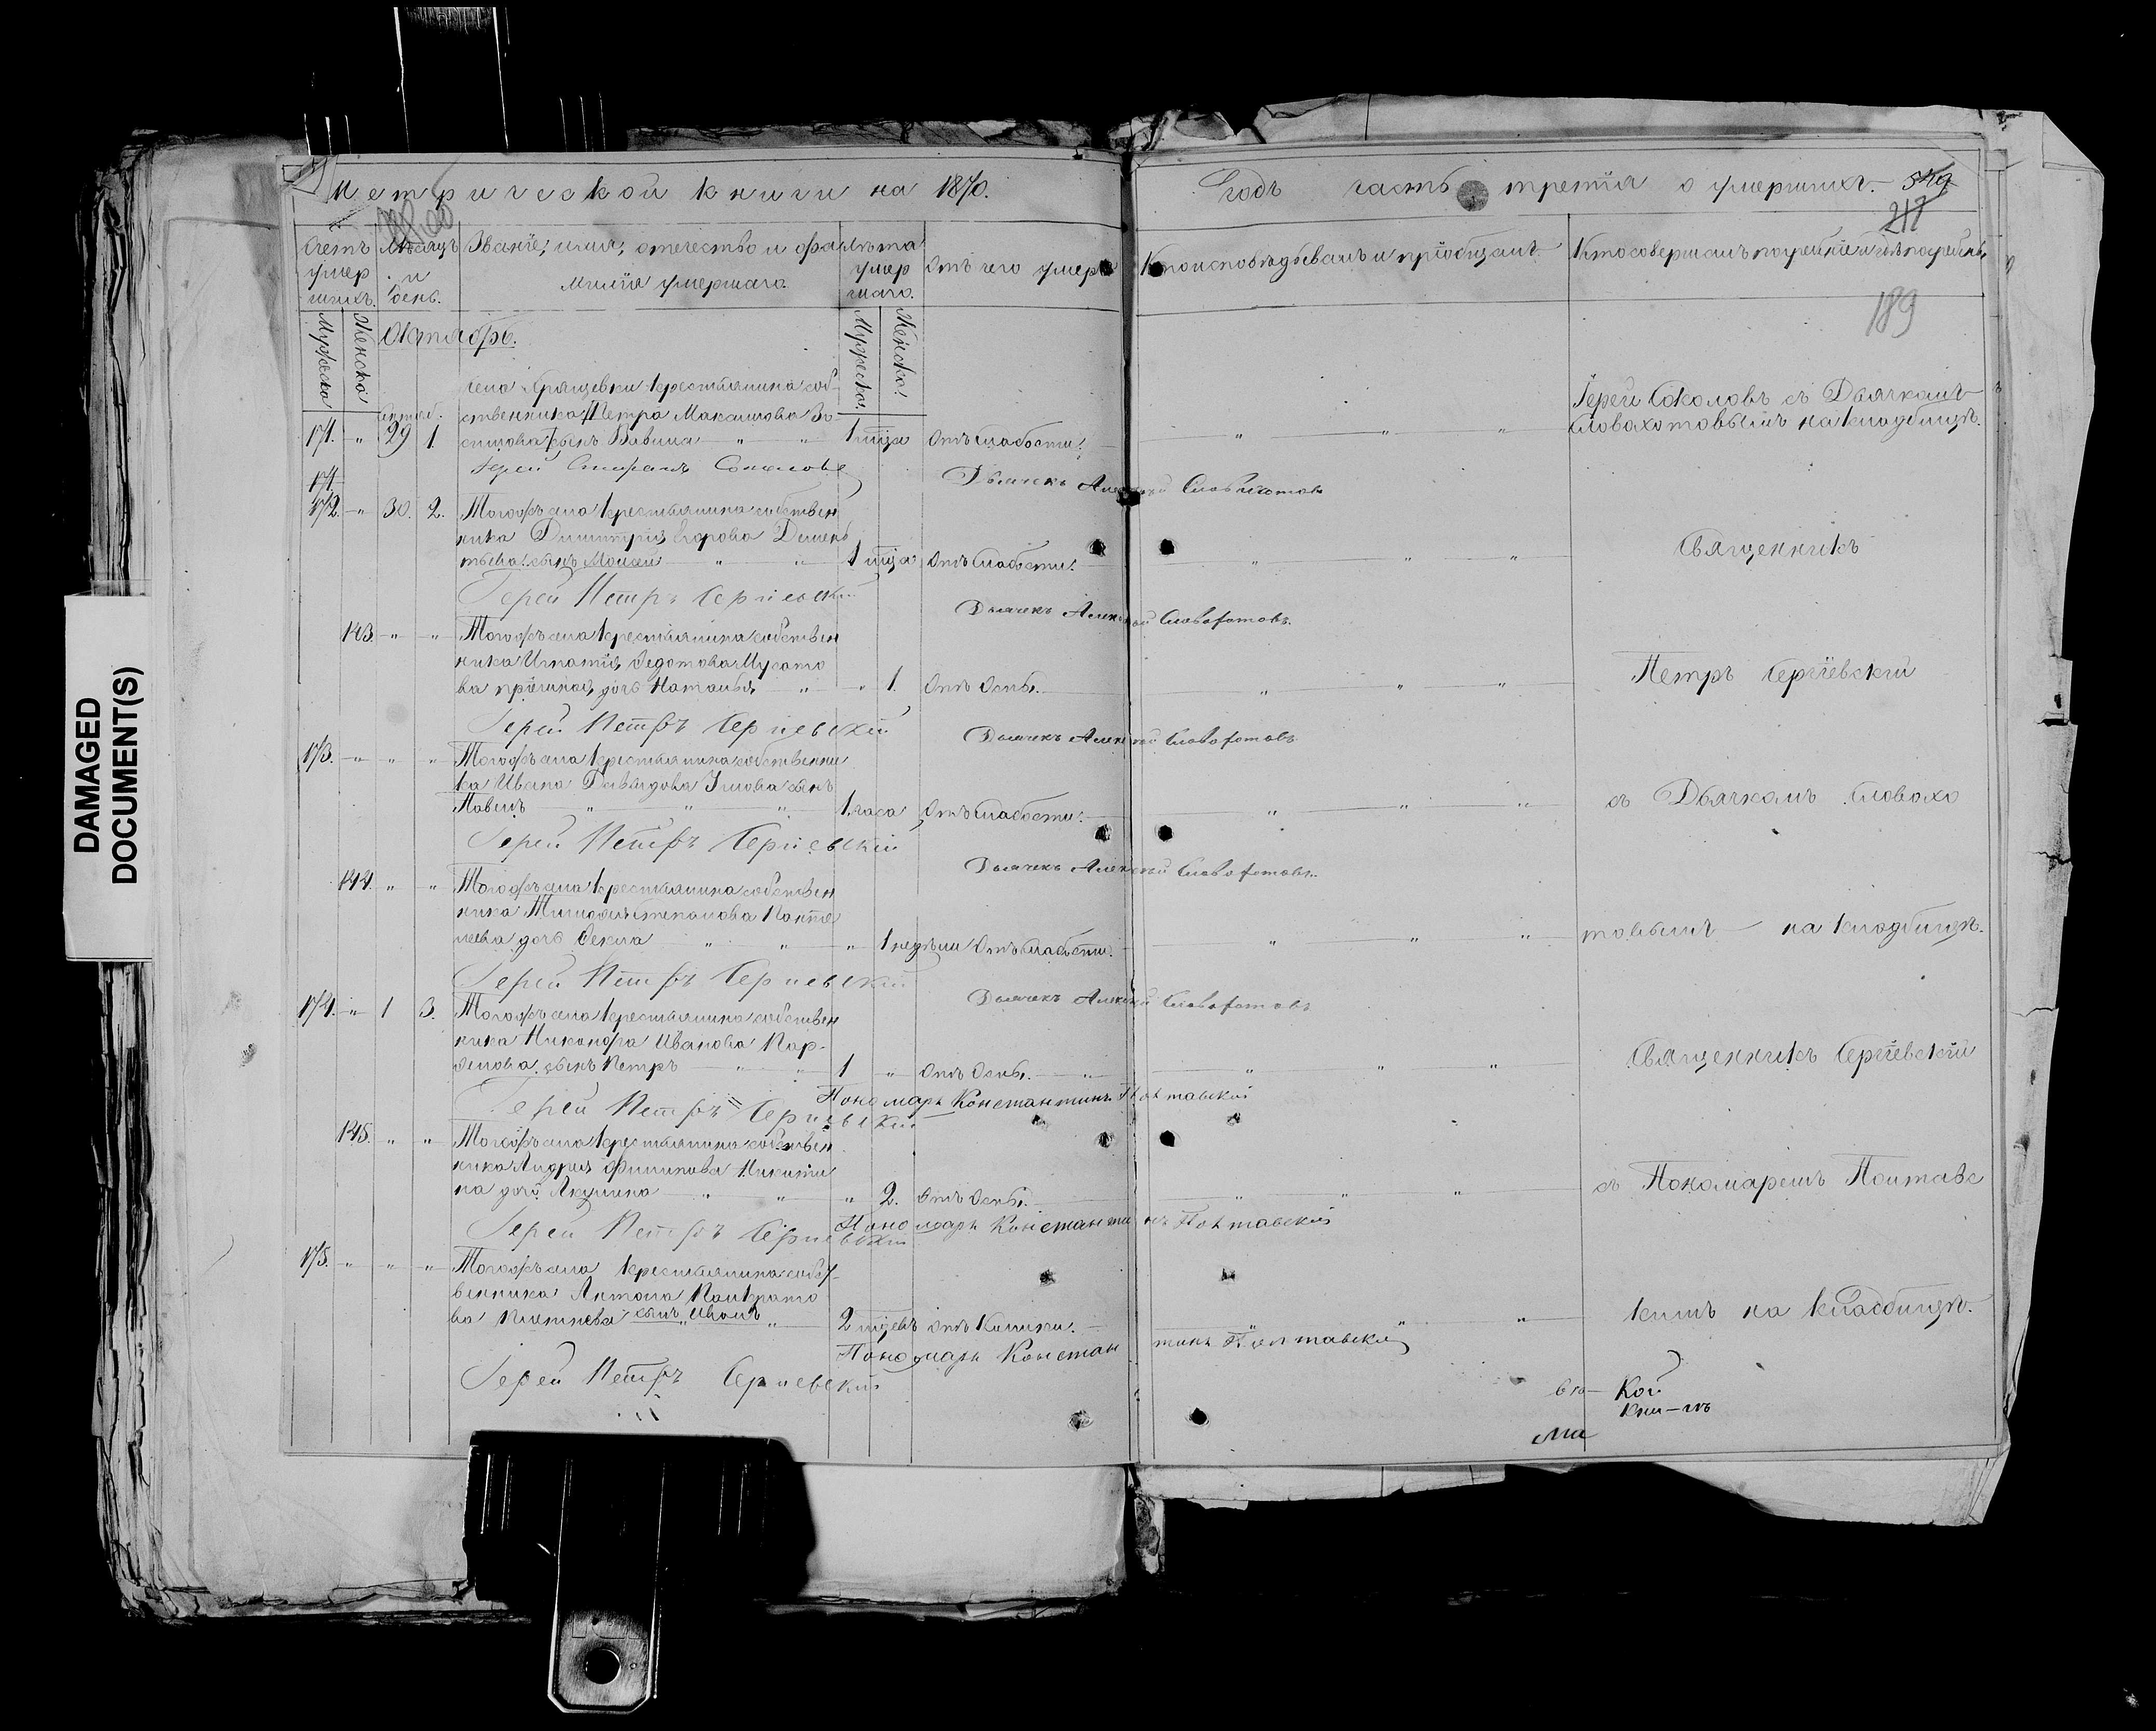 Метрической книги на 1870.
годъ часть третія о умершихъ.
217
189
Счетъ умершихъ.
Мѣсяцъ и день.
Званіе, имя, отечество и фамилія умершаго.
Лѣта умершаго.
Отъ чего умеръ
Кто исповѣдывалъ и пріобщалъ
Кто совершалъ погребеніе и гдѣ погребены
Мужеска
Женска
Октябрь.
Мужеска
Женска
села Хрящевки крестьянина соб-
ственника Петра Максимова
171. " 29 1. сынъ Вавила " " 1 мца Отъ слабости.
Іерей Сокаловъ съ Дьячкомъ
Словохотовымъ на кладбищѣ.
Іерей Сокаловъ
Дьячекъ Алексѣй Словохотовъ
171.
172. " 30. 2. Тогожъ села крестьянина собствен
ника Димитрія Егорова Демен
тьева сынъ Моисей " " 1 мца Отъ слабости.
Священникъ
Іерей Петръ Сергіевскій
Дьячекъ Алексѣй Словохотовъ.
143. " " Тогожъ села крестьянина собствен
ника Игнатія Федотова Мусато
ва пріемная дочь Наталья " " 1. Отъ Оспы.
Петръ Сергіевскій
Іерей Петръ Сергіевскій
Дьячекъ Алексѣй Словохотовъ
173. " " " Тогожъ села крестьянина собственни
ка Ивана Давыдова сынъ
Павелъ " " " 1 часа Отъ слабости.
съ Дьячкомъ Словохо
Іерей Петръ Сергіевскій
Дьячекъ Алексѣй Словохотовъ.
144. " " Тогожъ села крестьянина собствен
ника Тимофея Степанова Пантя
леева дочь Фекла " " " 1 недѣли Отъ слабости.
товымъ на кладбищѣ.
Іерей Петръ Сергіевскій
Дьячекъ Алексѣй Словохотовъ
174. " 1 3. Тогожъ села крестьянина собствен
ника Никонора Иванова Пар-
фенова сынъ Петръ " " 1 " Отъ Оспы.
Священникъ Сергіевскій
Пономарь Константинъ Полтавскій
Іерей Петръ Сергіевскій
145. " " Тогожъ села крестьянина собствен
ника Андрея Филипова Никити
на дочь Акулина " " " 2. Отъ Оспы.
съ Пономаремъ Полтавс
Пономарь Константинъ Полтавскій
Іерей Петръ Сергіевскій
175. " " " Тогожъ села крестьянина собст
венника Антона Панкрато
ва сынъ Иванъ " 2 мцевъ Отъ
кимъ на кладбищѣ.
Пономарь Константинъ Полтавскій
Іерей Петръ Сергіевскій
DAMAGED
DOCUMENT(S)